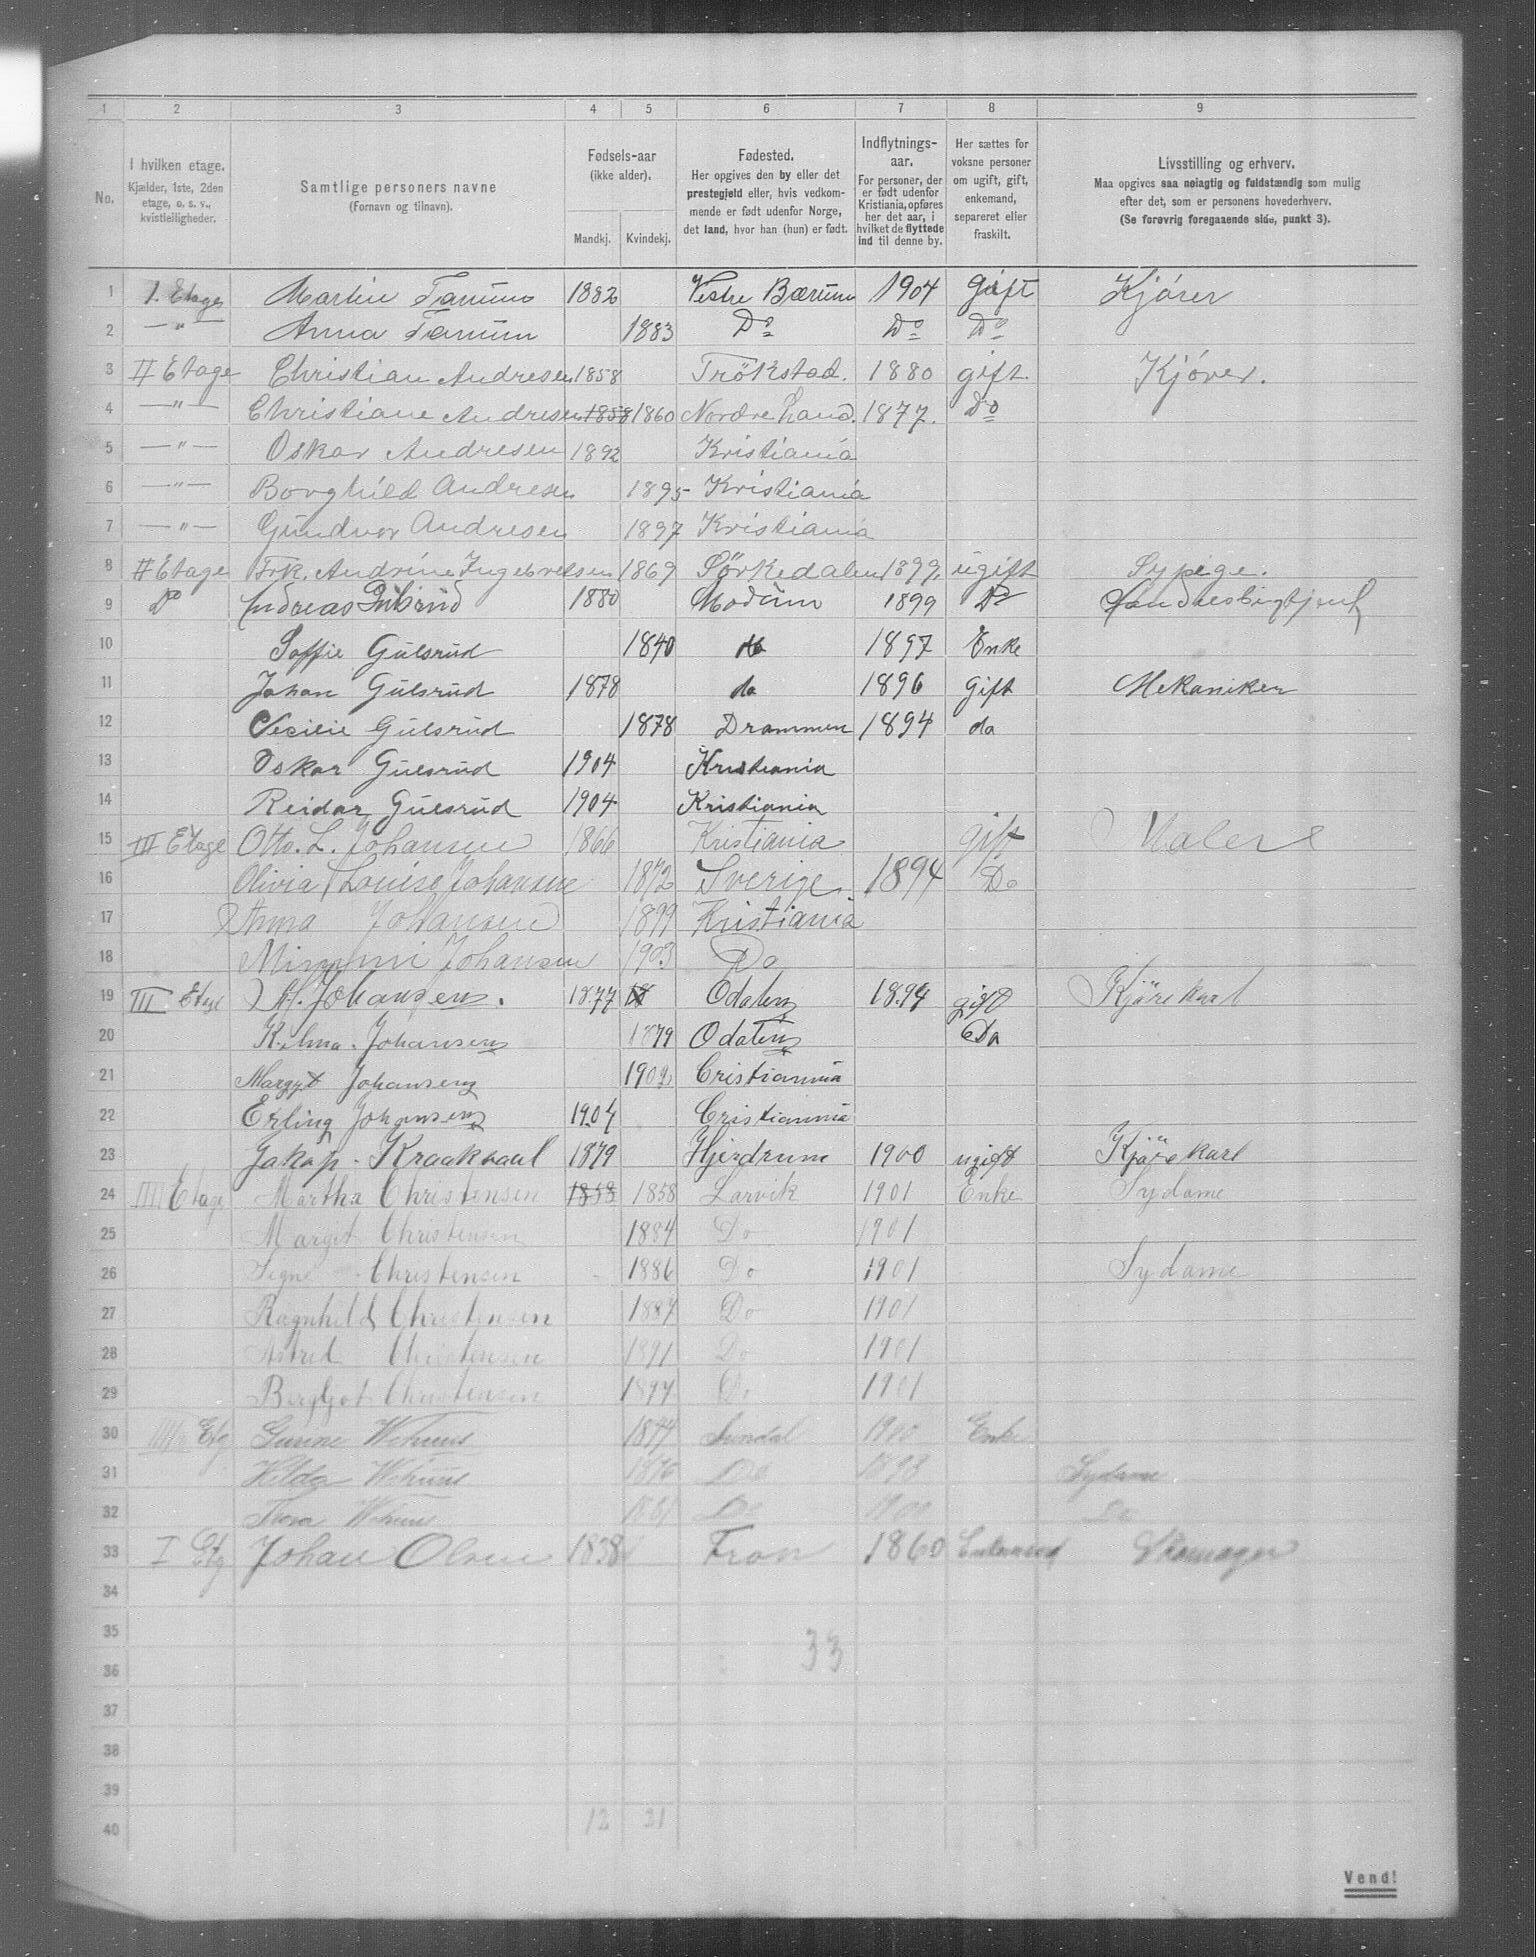 1 2 3 4 5 6 7 8 9
No.
I hvilken etage.
Kjælder, 1ste, 2den
etage, o. s. v.,
kvistleiligheder.
Samtlige personers navne
(Fornavn og tilnavn).
Fødsels-aar
(ikke alder).
Mandkj. Kvindekj.
Fødested.
Her opgives den by eller det
prestegjeld eller, hvis vedkom-
mende er født udenfor Norge,
det land, hvor han (hun) er født.
Indflytnings-
aar.
For personer, der
er født udenfor
Kristiania, opføres
her det aar, i
hvilket de flyttede
ind til denne by.
Her sættes for
voksne personer
om ugift, gift,
enkemand,
separeret eller
fraskilt.
Livsstilling og erhverv.
Maa opgives saa nøiagtig og fuldstændig som mulig
efter det, som er personens hovederhverv.
(Se forøvrig foregaaende side, punkt 3).
1 1. Etage Martin Tanum 1882 Vestre Bærum 1904 gift Kjører
2 —"— Anna Tanum 1883 Do Do Do
3 II Etage Christian Andresen 1858 Trökstad. 1880 gift. Kjøver.
4 —"— Christiane Andresen 1858 1860 Nordre Land. 1877. Do
5 —"— Oskar Andresen 1892 Kristiania
6 —"— Borghild Andresen 1895 Kristiania
7 —"— Gundvor Andresen 1897 Kristiania
8 II Etage Frk. Andrine Ingebretsen 1869 Sörkedalen 1899. ugift Sypige.
9 Do Andreas Gulsrud 1880 Modum 1899 Do
10 Soffie Gulsrud 1840 do 1897 Enke
11 Johan Gulsrud 1878 do 1896 gift Mekaniker
12 Cecilie Gulsrud 1878 Drammen 1894 do
13 Oskar Gulsrud 1904 Kristiania
14 Reidar Gulsrud 1904 Kristiania
15 III Etage Otto. L. Johansen 1866 Kristiania gift Maler
16 Olivia Louise Johansen 1872 Sverige 1894 Do
17 Anna Johansen 1899 Kristiania
18 Mimmi Johansen 1903 Do
19 III Etage Johansen. 1877 18 Odalen 1894 gift Kjörekarl
20 Johansen 1879 Odalen Do
21 Margyt Johansen 1902 Cristiannia
22 Erling Johansen 1904 Cristiannia
23 Jakop Kraakhaul 1879 Hjerdrum 1900 ugift Kjörekarl
24 IIII Etage Martha Christensen 1858 1858 Larvik 1901 Enke Sydame
25 Margit Christensen 1884 Do 1901
26 Signe Christensen 1886 Do 1901 Sydame
27 Ragnhild Christensen 1887 Do 1901
28 Astrid Christensen 1891 Do 1901
29 Bergljot Christensen 1894 Do 1901
30 Etg Gurine 1844 Sundal 1900 Enke
31 Hilda 1876 Do 1898 Sydame
32 Thora Do 1900 Do
33 I Etg Johan Olsen 1838 Fron 1860 Enkemand Skomager
34
35
36
33
37
38
39
40
12 21
Vend!